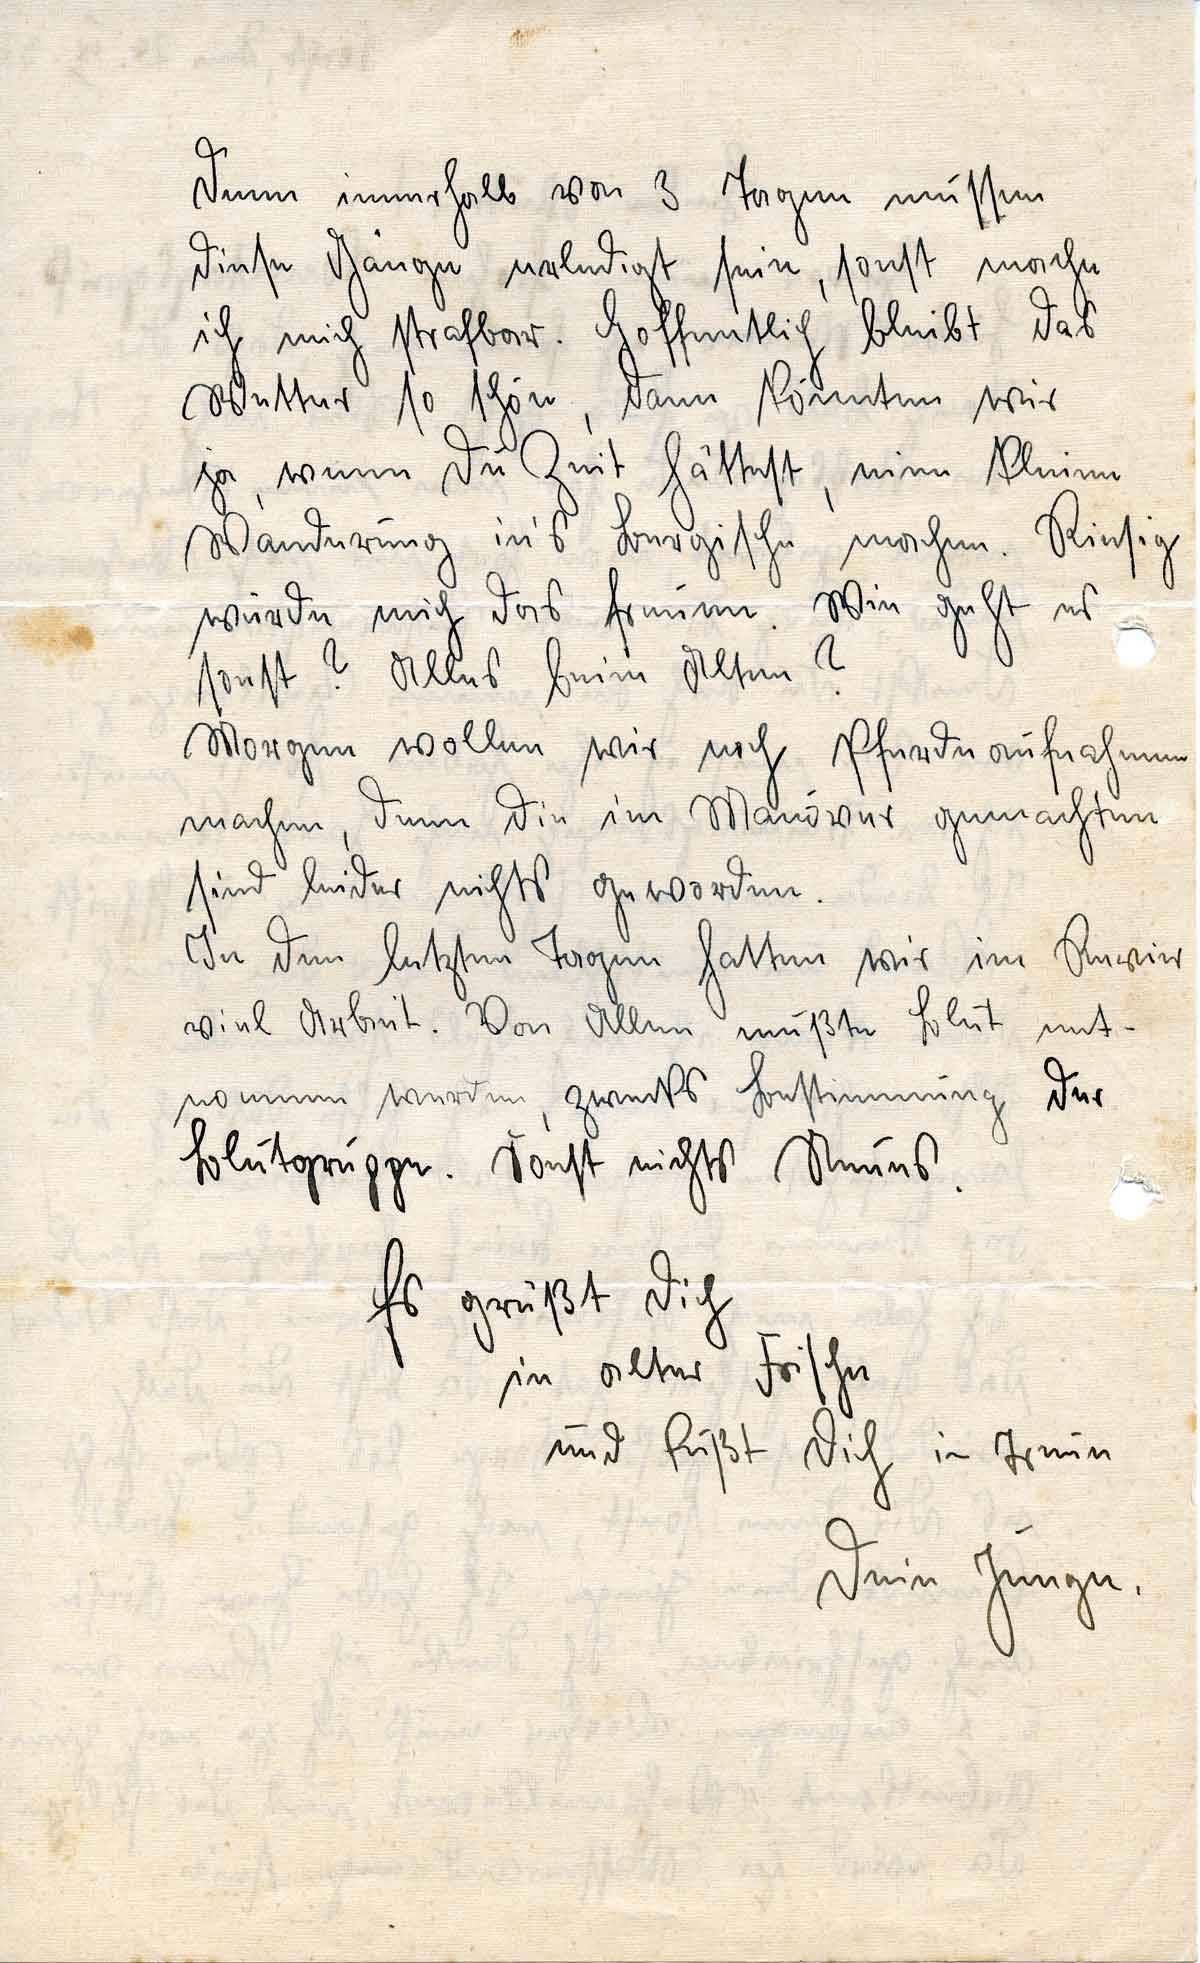 Denn innerhalb von 3 Tagen müssen
diese Gänge erledigt sein, sonst mache
ich mich strafbar. Hoffentlich bleibt das
Wetter so schön, dann könnten wir
ja, wenn Du Zeit hättest, eine kleine
Wanderung in's Bergische machen. Riesig
würde mich das freuen. Wie geht es
sonst? Alles beim Alten?
Morgen wollen wir noch Pferdeaufnahmen
machen, denn die im Manöver gemachten
sind leider nichts geworden.
In den letzten Tagen hatten wir im Revier
viel Arbeit. Von Allen mußte Blut ent-
nommen werden, zwecks Bestimmung der
Blutgruppe. Sonst nichts Neues.
Es grüßt Dich
in alter Frische
und küßt Dich in Treue
Dein Junge.